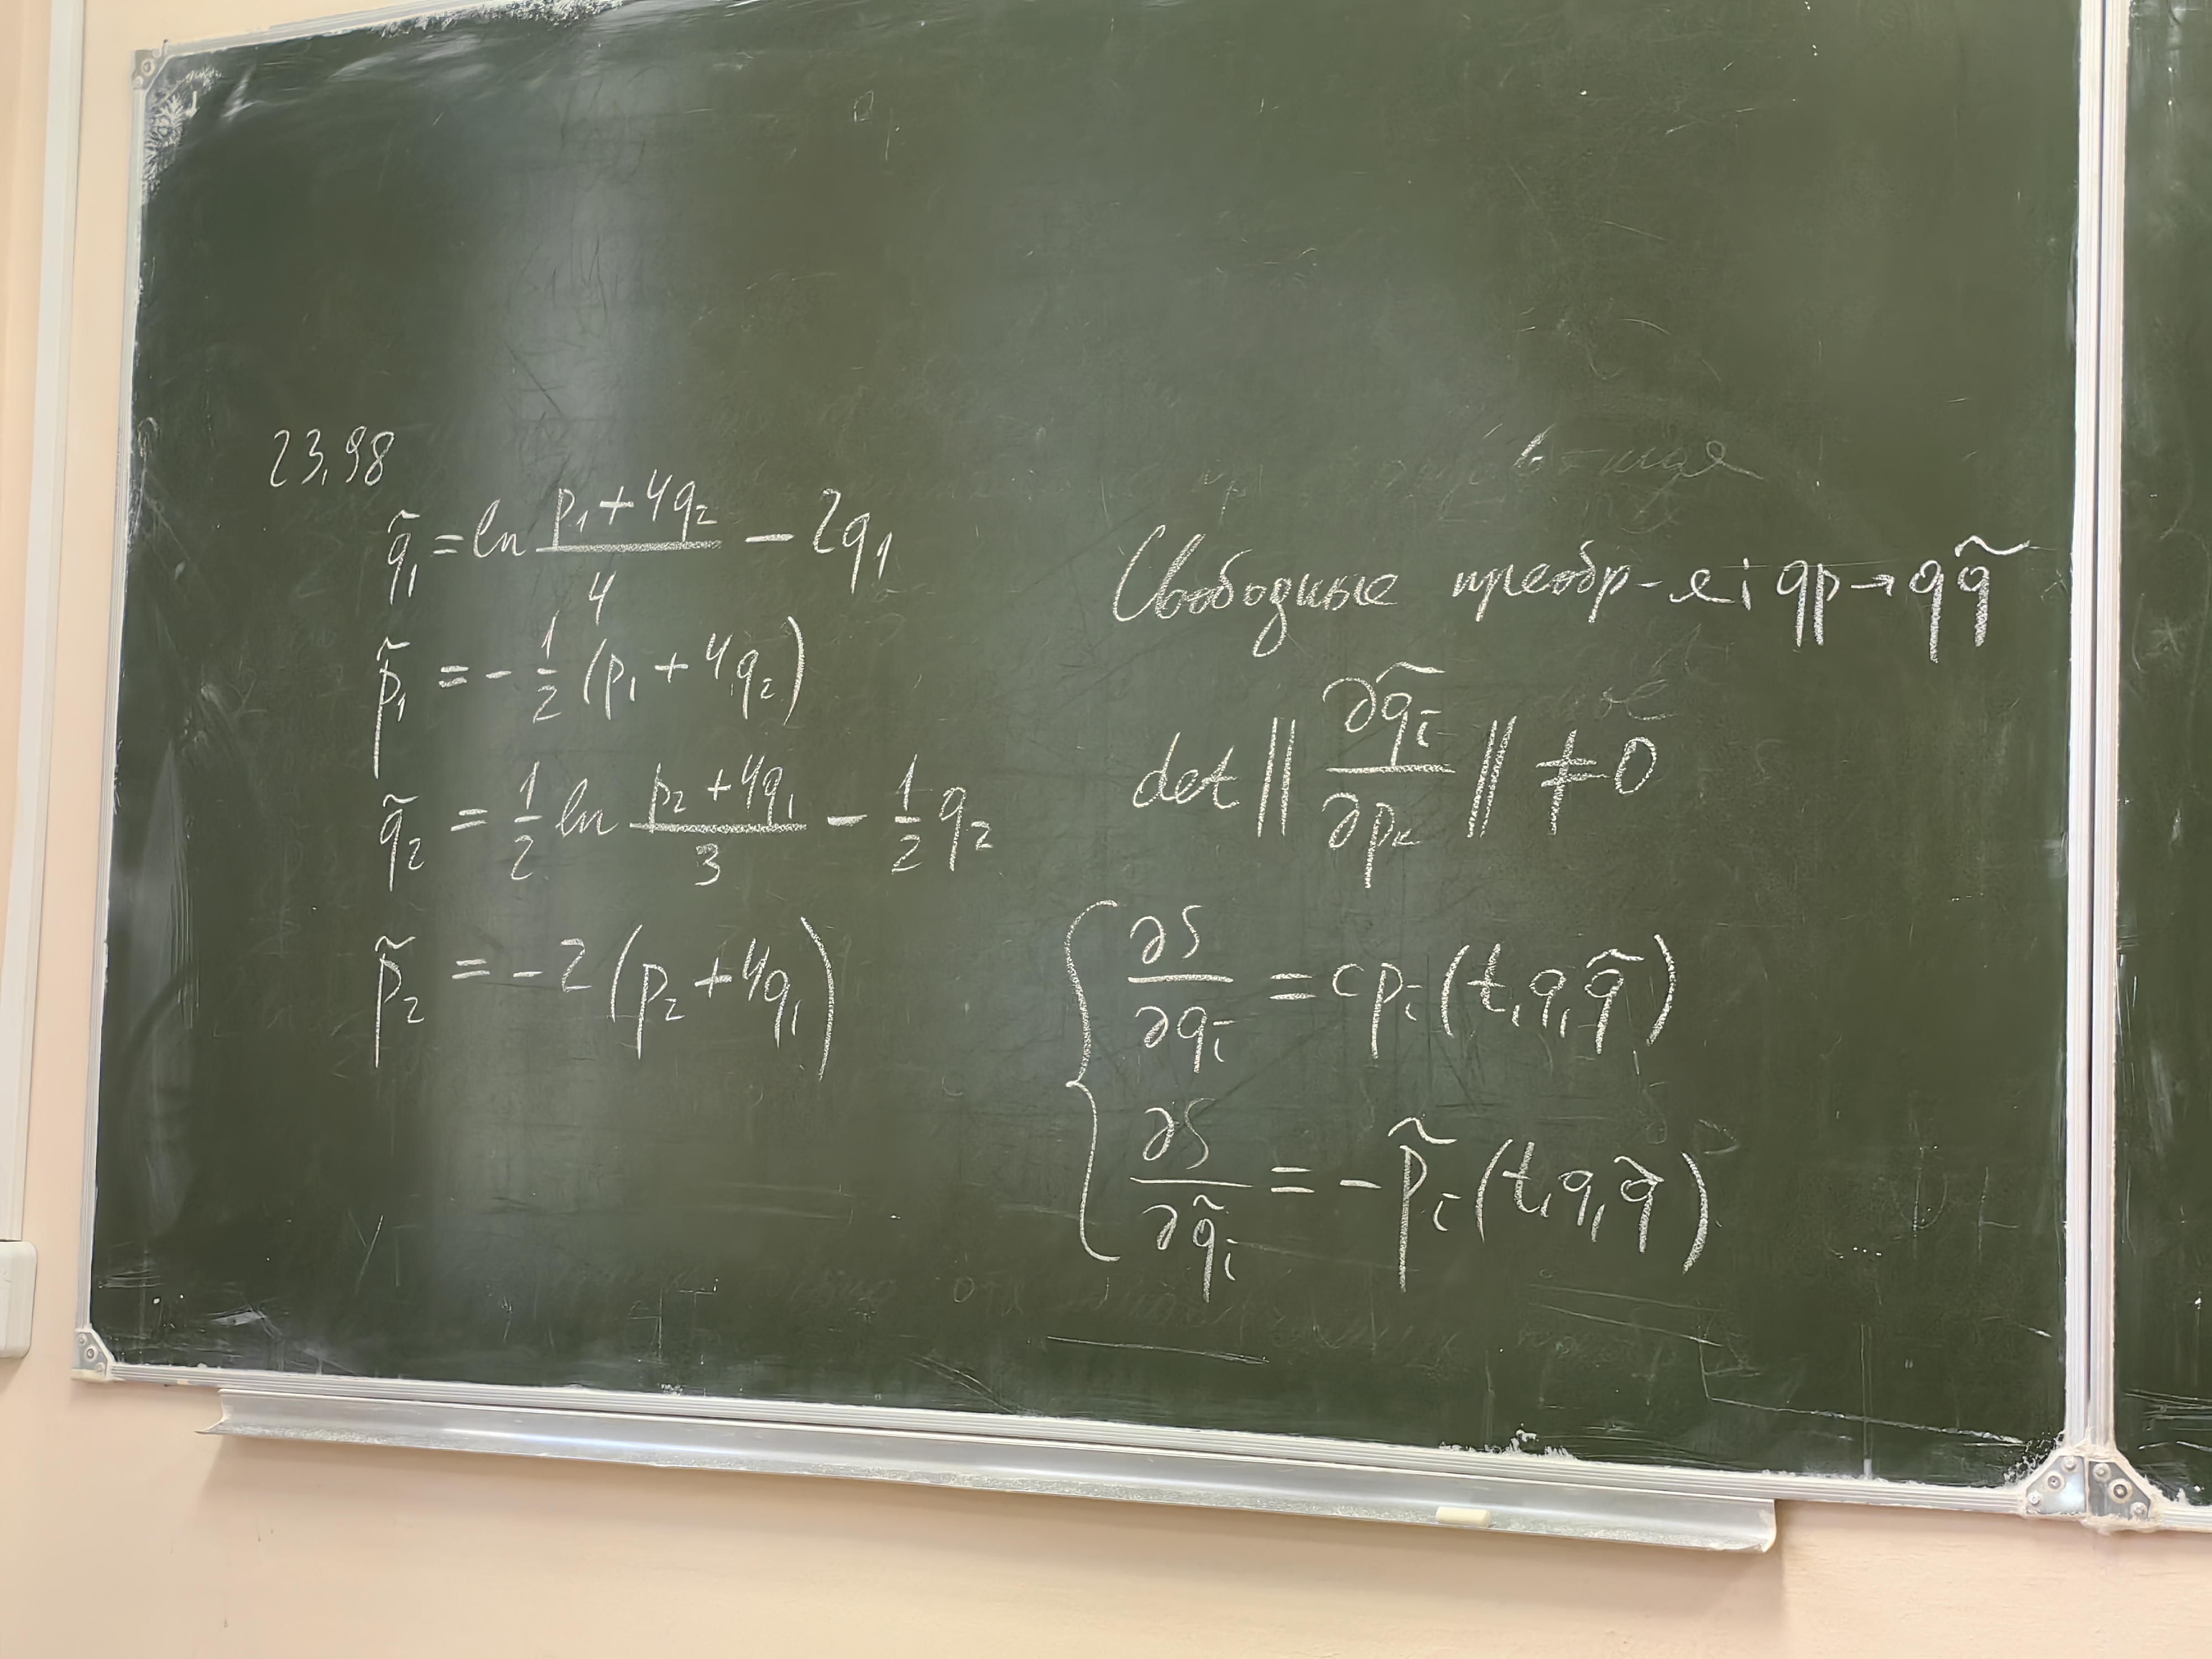 23.98
q̃₁ = ln (p₁ + 4q₂)/4 − 2q₁
p̃₁ = − 1/2 (p₁ + 4q₂)
q̃₂ = 1/2 ln (p₂ + 4q₁)/3 − 1/2 q₂
p̃₂ = −2 (p₂ + 4q₁)
Свободные преобр-я: qp → qq̃
det ‖ ∂q̃ᵢ/∂pₖ ‖ ≠ 0
{ ∂S/∂qᵢ = cpᵢ(t, q, q̃)
∂S/∂q̃ᵢ = −p̃ᵢ(t, q, q̃)